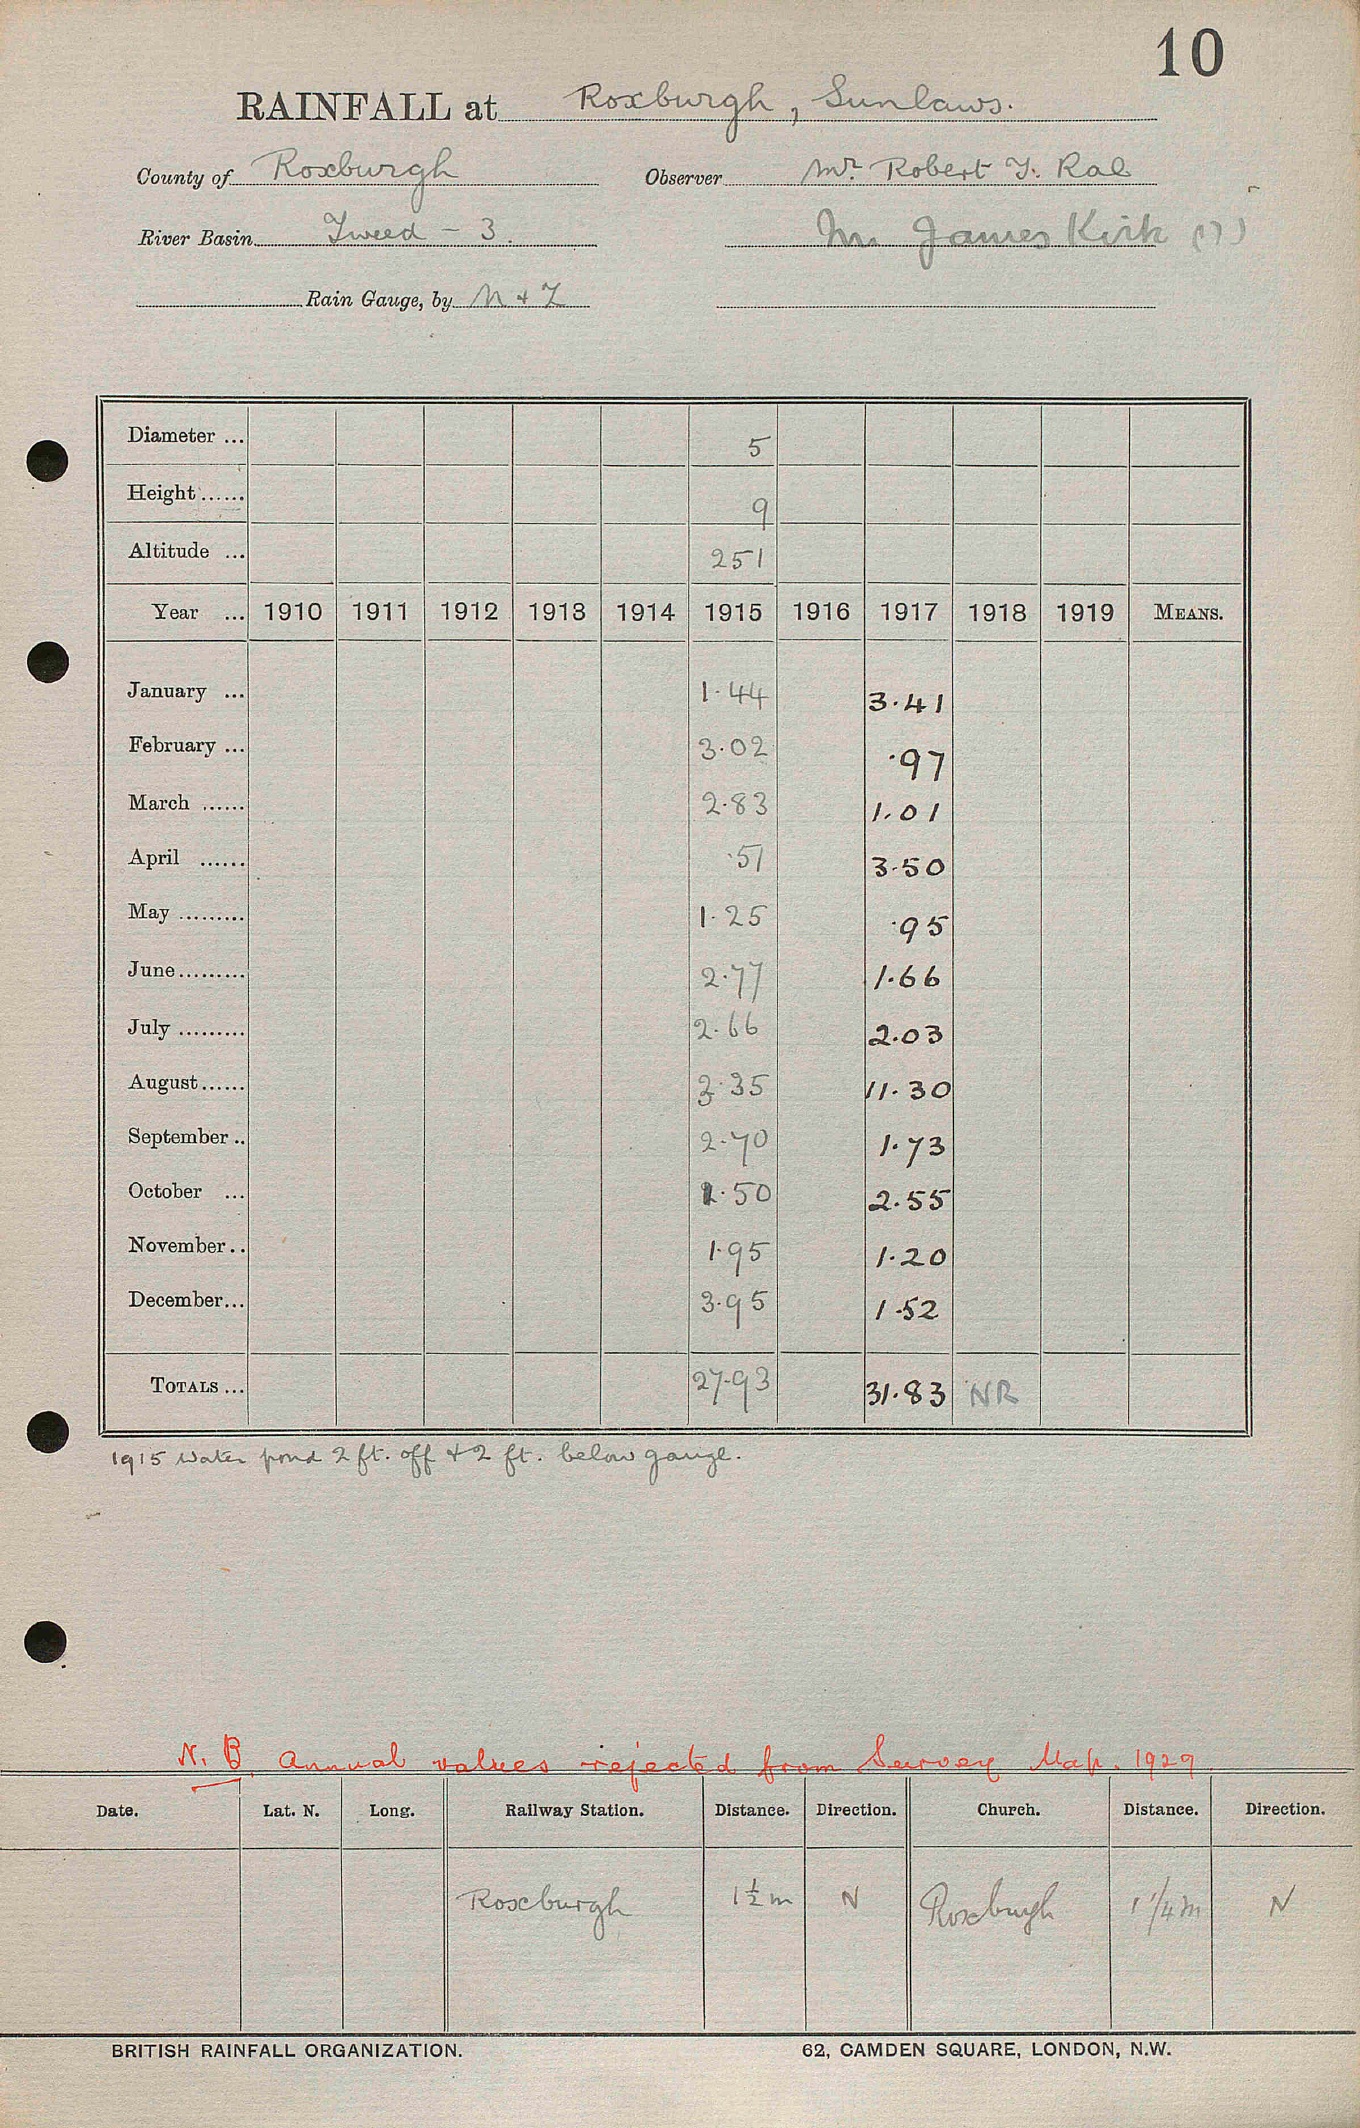 10
RAINFALL at Roxburgh, Sunlaws.
County of Roxburgh Observer Mr. Robert T. Rae
River Basin Tweed - 3. Mr James Kirk (17)
Rain Gauge, by N & Z
Diameter ... 5
Height ...... 9
Altitude ... 251
Year ... 1910 1911 1912 1913 1914 1915 1916 1917 1918 1919 MEANS.
January ... 1.44 3.41
February ... 3.02 .97
March ...... 2.83 1.01
April ...... .51 3.50
May ......... 1.25 .95
June ......... 2.77 1.66
July ......... 2.66 2.03
August ...... 3.35 11.30
September .. 2.70 1.73
October ... 1.50 2.55
November .. 1.95 1.20
December ... 3.95 1.52
TOTALS ... 27.93 31.83 NR
1915 Water pond 2 ft. off & 2 ft. below gauge.
N.B. Annual values rejected from Survey Map. 1929
Date. Lat. N. Long. Railway Station. Distance. Direction. Church. Distance. Direction.
Roxburgh 1½ m N Roxburgh 1 1/4 m N
BRITISH RAINFALL ORGANIZATION. 62, CAMDEN SQUARE, LONDON, N.W.